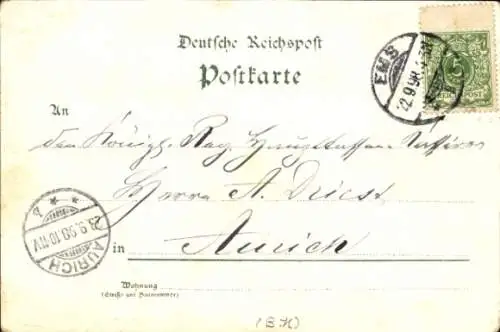 Deutsche Reichspost
Postkarte
EMS
22.9.98
5
REICHSPOST
An
den Königl. Reg Hauptkassen-Kassirer
Herrn A. Driest
in Aurich
AURICH
23.9.98.10-11V
Wohnung
(Straße und Hausnummer)